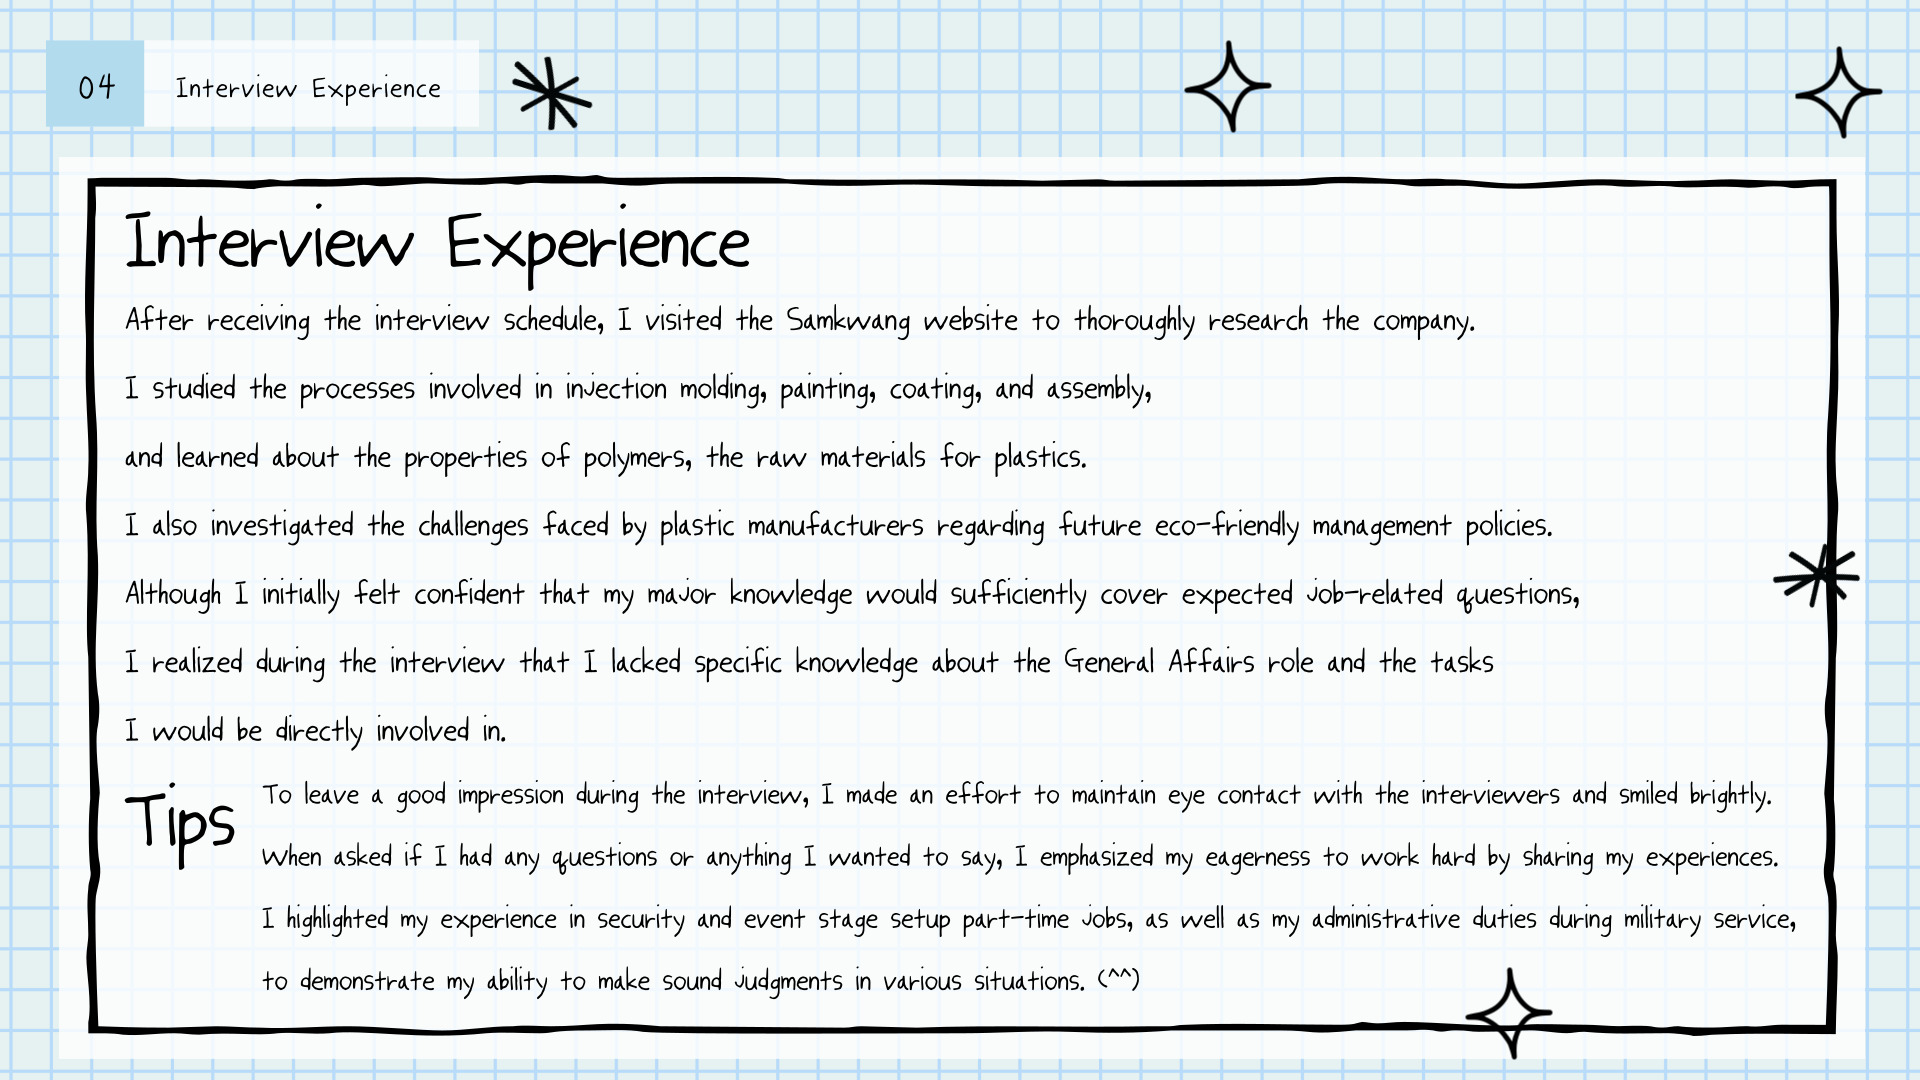 04
Interview Experience
Interview Experience
After receiving the interview schedule, I visited the Samkwang website to thoroughly research the company.
I studied the processes involved in injection molding, painting, coating, and assembly,
and learned about the properties of polymers, the raw materials for plastics.
I also investigated the challenges faced by plastic manufacturers regarding future eco-friendly management policies.
Although I initially felt confident that my major knowledge would sufficiently cover expected job-related questions,
I realized during the interview that I lacked specific knowledge about the General Affairs role and the tasks
I would be directly involved in.
Tips
To leave a good impression during the interview, I made an effort to maintain eye contact with the interviewers and smiled brightly.
When asked if I had any questions or anything I wanted to say, I emphasized my eagerness to work hard by sharing my experiences.
I highlighted my experience in security and event stage setup part-time jobs, as well as my administrative duties during military service,
to demonstrate my ability to make sound judgments in various situations. (^^)